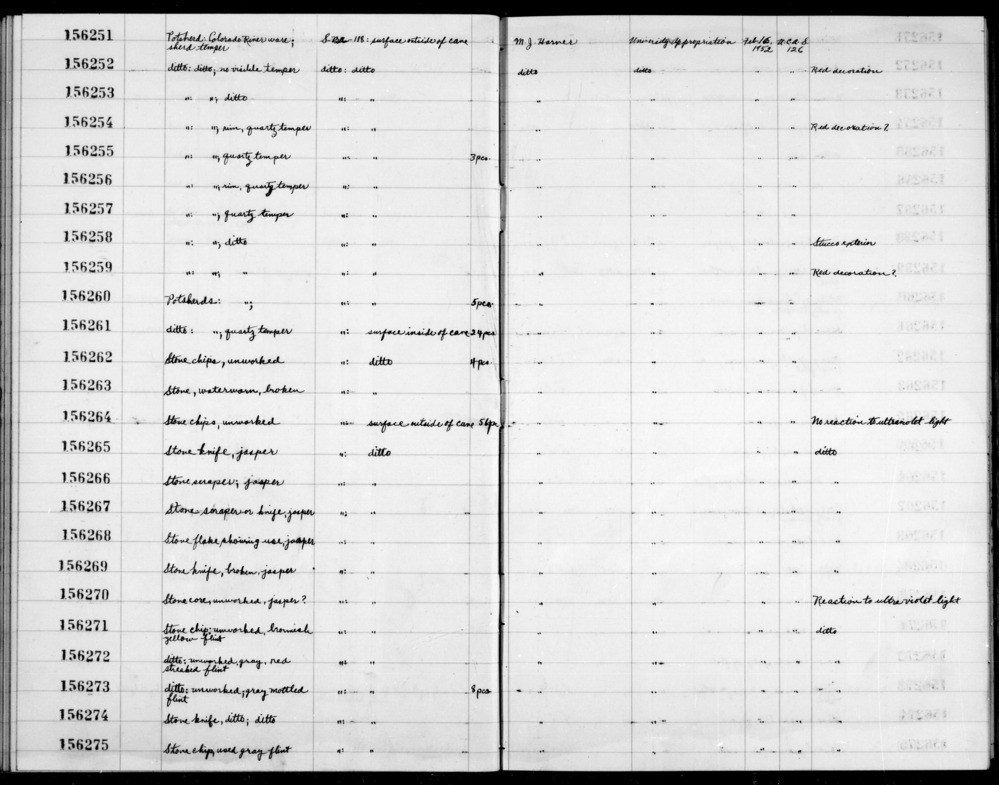 156251 Potsherd: Colorado River ware; S.Ba 118: surface outside of cave M. J. Harner University Appropriation Feb. 16, U.C.A.S.
sherd temper 1952 126
156252 ditto: ditto, no visible temper ditto: ditto ditto ditto " " Red decoration
156253 ": "; ditto ": " " " " "
156254 ": "; rim, quartz temper ": " " " " " Red decoration?
156255 ": "; quartz temper ": " 3 pcs. " " " "
156256 ": "; rim, quartz temper ": " " " " "
156257 ": "; quartz temper ": " " " " "
156258 ": "; ditto ": " " " " " Stucco exterior
156259 ": "; " ": " " " " " Red decoration?
156260 Potsherds: "; ": " 5 pcs. " " " "
156261 ditto: "; quartz temper ": surface inside of cave 24 pcs " " " "
156262 Stone chips, unworked ": ditto 4 pcs. " " " "
156263 Stone, waterworn, broken ": " " " " "
156264 Stone chips, unworked ": surface outside of cave 56 pc. " " " " No reaction to ultraviolet light
156265 Stone knife, jasper ": ditto " " " " ditto
156266 Stone scraper; jasper ": " " " " " "
156267 Stone scraper or knife, jasper ": " " " " " "
156268 Stone flake, showing use, jasper ": " " " " " "
156269 Stone knife, broken, jasper ": " " " " " "
156270 Stone core, unworked, jasper? ": " " " " " Reaction to ultra violet light
156271 Stone chip: unworked, brownish ": " " " " " ditto
yellow flint
156272 ditto: unworked, gray, red ": " " " " " "
streaked flint
156273 ditto: unworked, gray mottled ": " 8 pcs " " " " "
flint
156274 Stone knife, ditto; ditto ": " " " " " "
156275 Stone chip, used gray flint ": " " " " " "